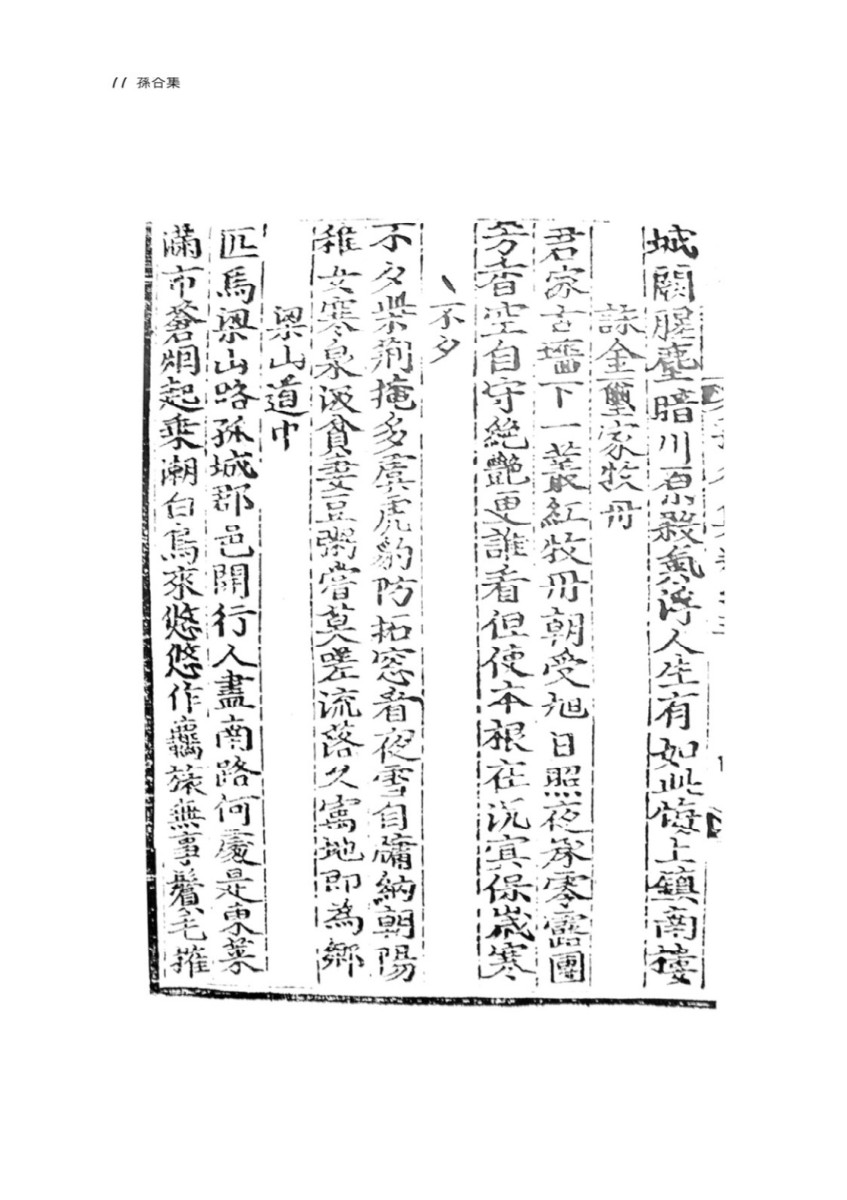 11 孫合集
城闕腥塵暗川原殺氣浮人生有如此莫上鎭南樓
詠金璽家牧丹
君家古墻下一叢紅牧丹朝受旭日照夜承零露團
芳香空自守絶艶更誰看但使本根在沉宲保嵗寒
不夕
不夕柴荊掩多虞虎豹防拓窓看夜雪自牖納朝陽
稚女寒泉汲貧妻豆粥嘗莫嗟流落久寓地即為鄉
梁山道中
匹馬梁山路孤城郡邑開行人盡南路何處是東萊
滿市蒼烟起乗潮白鳥來悠悠作羈旅無事鬢毛摧